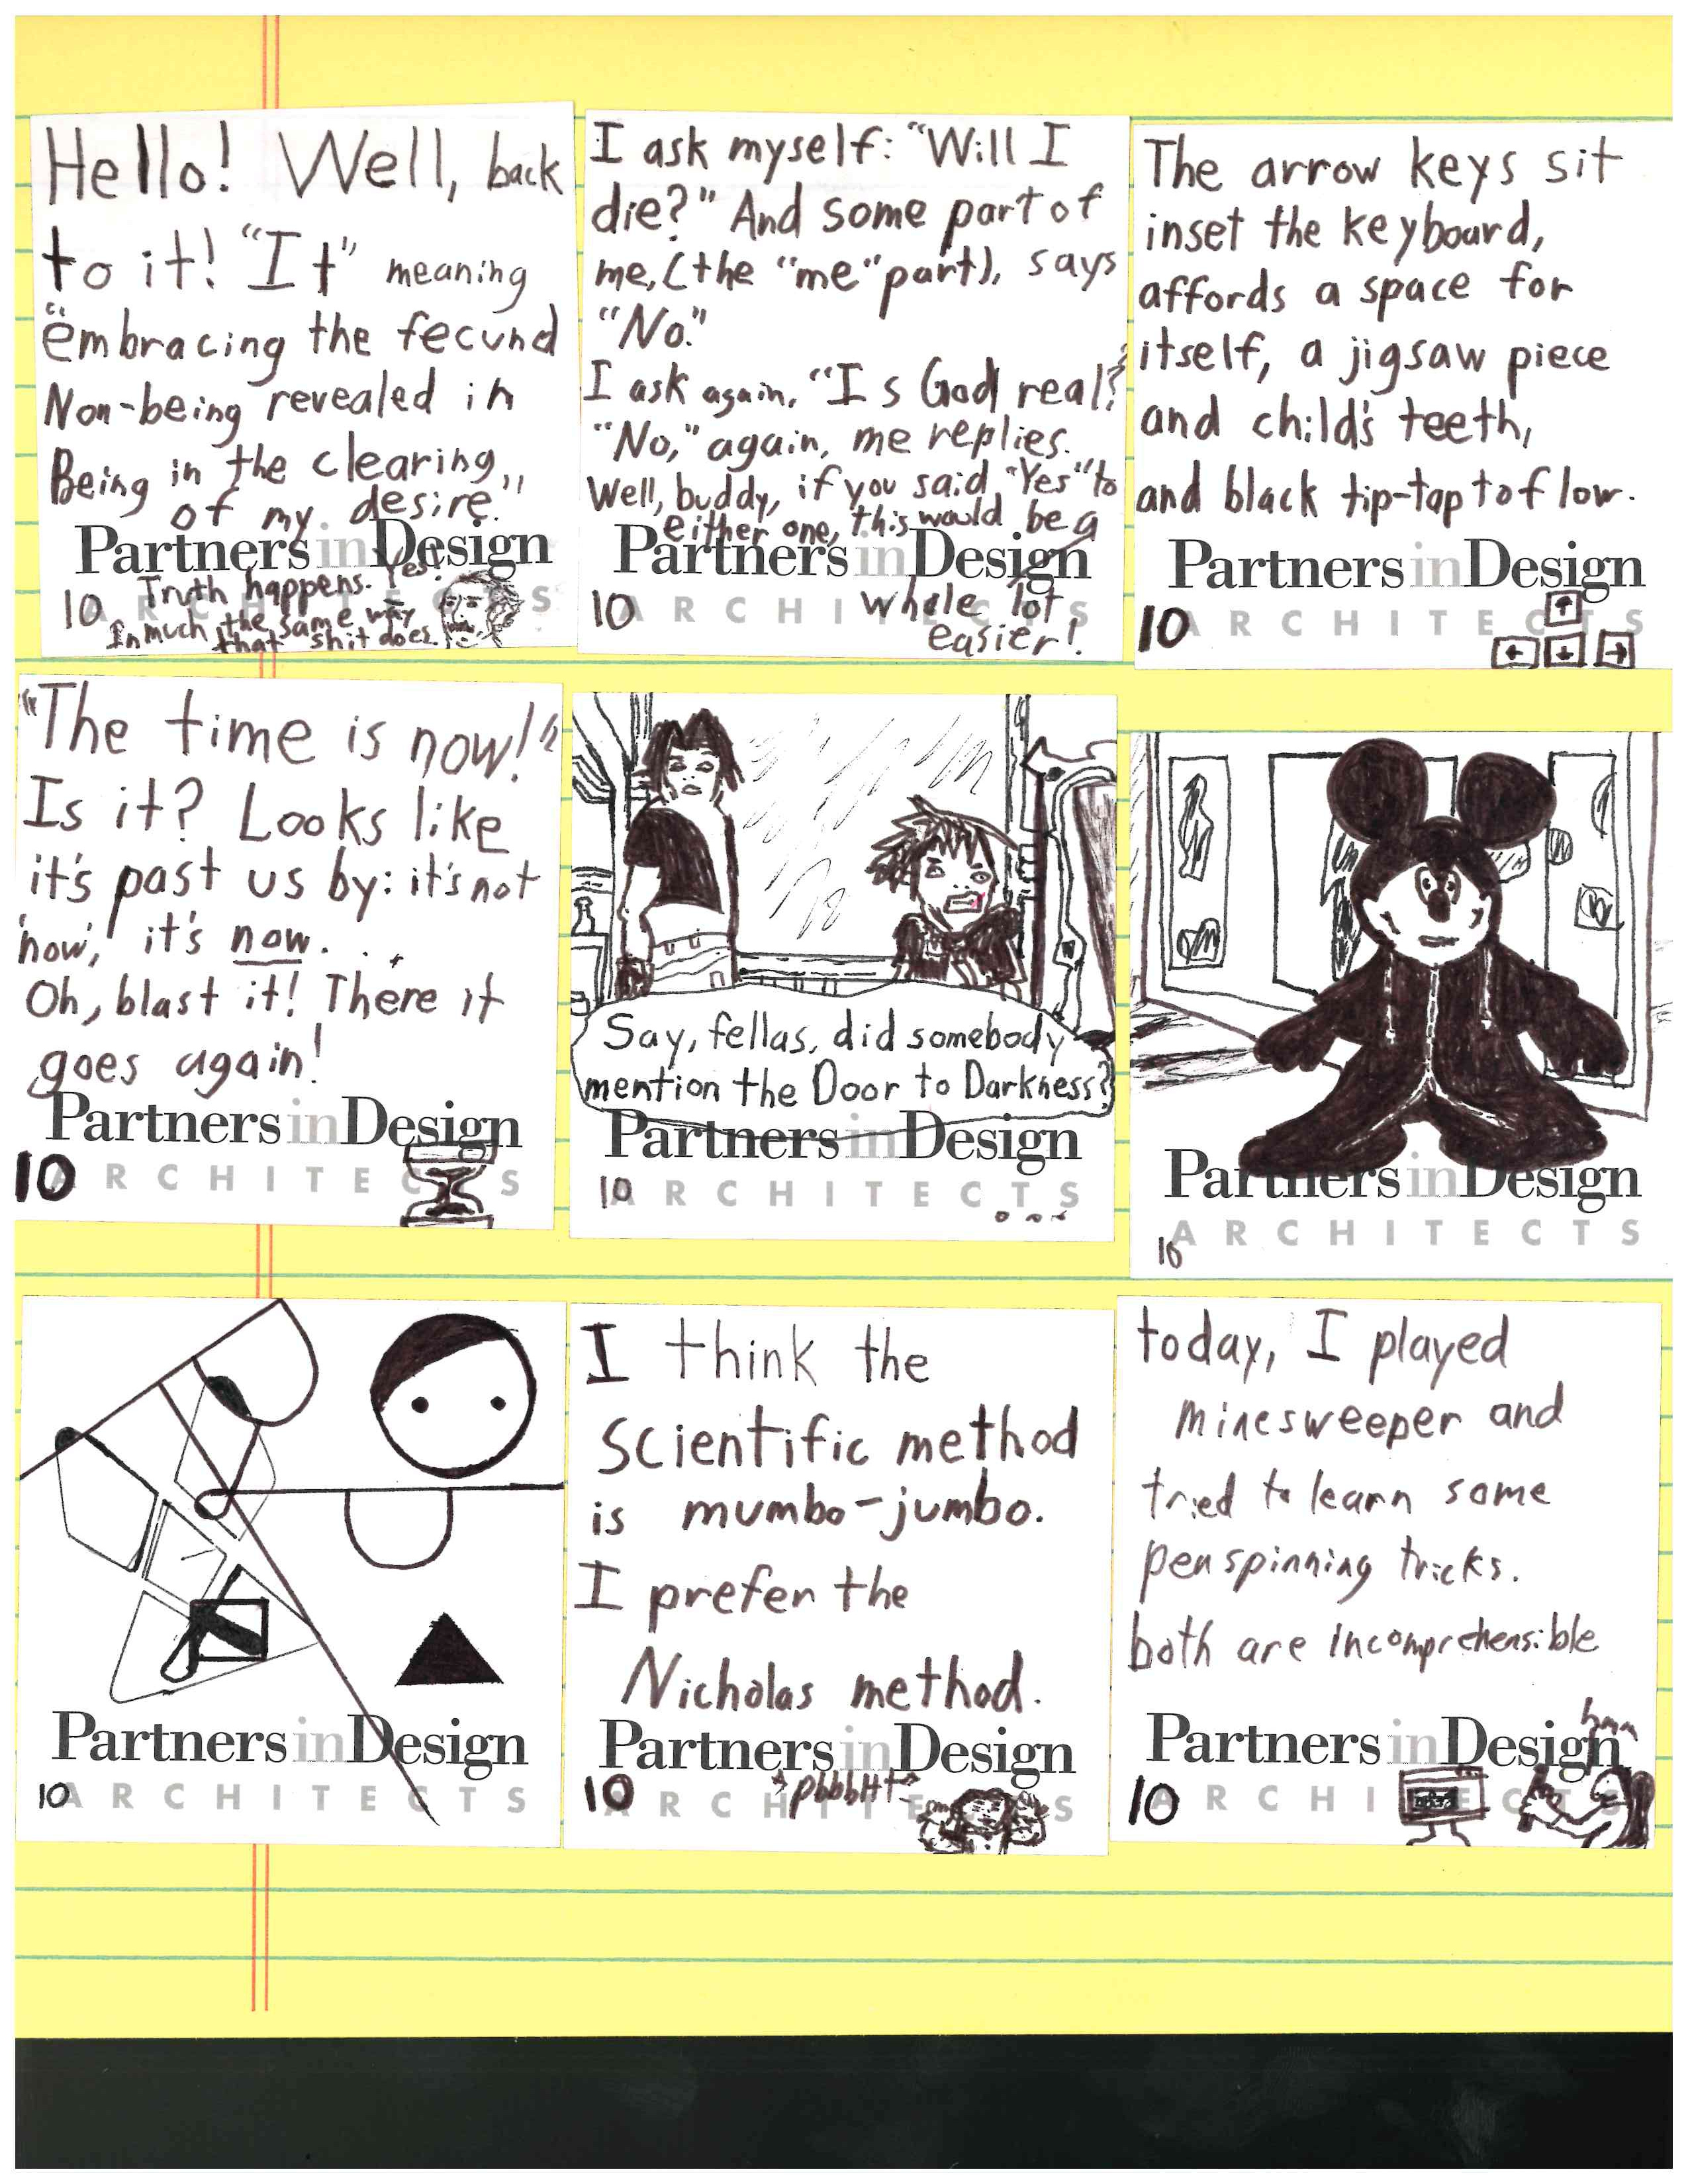 Hello! Well, back
to it! "It" meaning
"embracing the fecund
Non-being revealed in
Being in the clearing
of my desire."
Partners in Design
ARCHITECTS
Truth happens. Yes!
In much the same way
that shit does.
10
I ask myself: "Will I
die?" And some part of
me, (the "me" part), says
"No."
I ask again, "Is God real?"
"No," again, me replies.
Well, buddy, if you said "Yes" to
either one, this would be a
whole lot
easier!
Partners in Design
ARCHITECTS
10
The arrow keys sit
inset the keyboard,
affords a space for
itself, a jigsaw piece
and child's teeth,
and black tip-tap to flow.
Partners in Design
ARCHITECTS
10
↑
← ↓ →
"The time is now!"
Is it? Looks like
it's past us by: it's not
'now,' it's now. . .
Oh, blast it! There it
goes again!
Partners in Design
ARCHITECTS
10
Say, fellas, did somebody
mention the Door to Darkness?
Partners in Design
ARCHITECTS
10
...
Partners in Design
ARCHITECTS
10
Partners in Design
ARCHITECTS
10
I think the
scientific method
is mumbo-jumbo.
I prefer the
Nicholas method.
Partners in Design
ARCHITECTS
*pbbbHt*
10
today, I played
minesweeper and
tried to learn some
pen spinning tricks.
both are incomprehensible
hmm
Partners in Design
ARCHITECTS
10